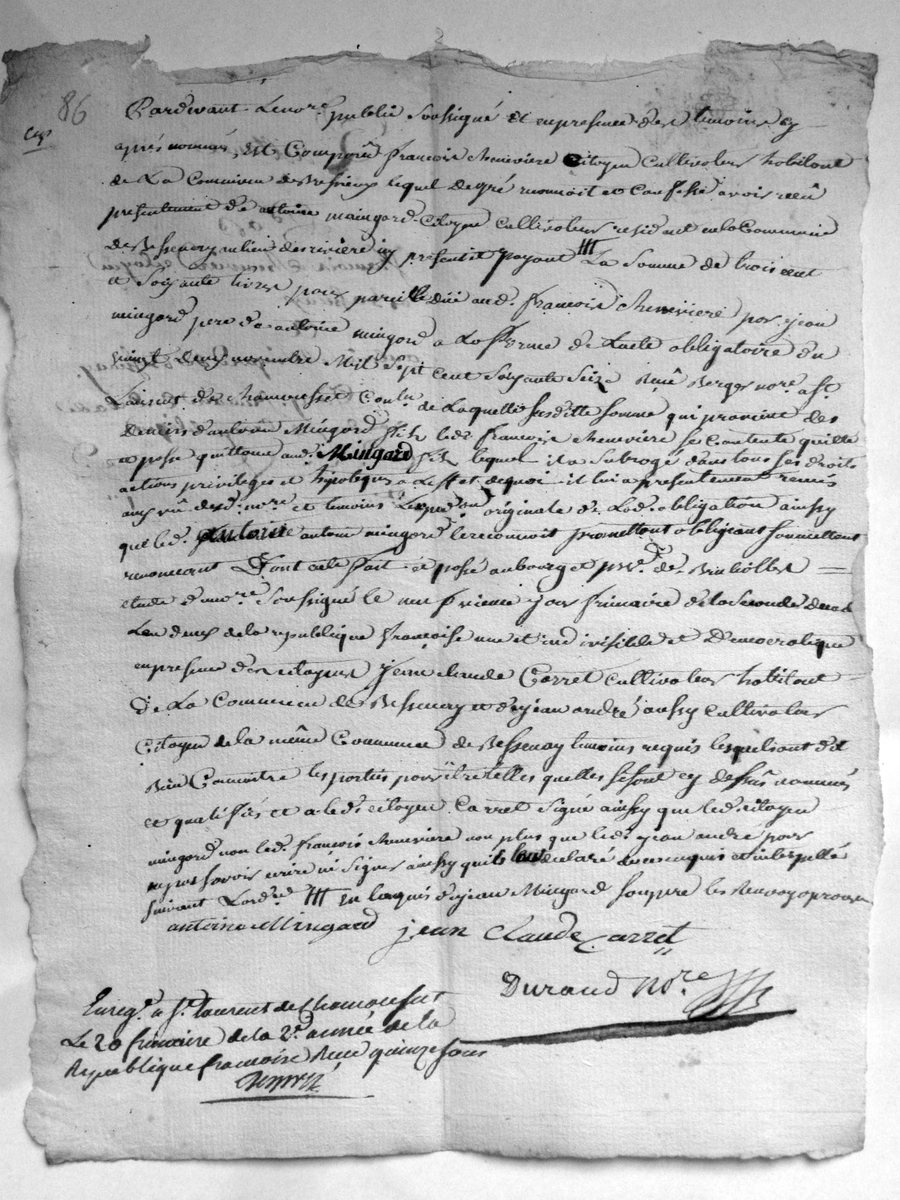 86
Cejs
Pardevant Le no.re public Soussigné Et en presence des temoins cy
après nommés, Est Comparû françois cheneviere Citoyen Cultivateur habitant
de La Commune de Bessenay lequel de gré reconnoit et Confesse avoir recû
presentement de antoine maingard Citoyen cultivateur residant en la Commune
de Bessenay au lieu des rivière icy present et payant # La Somme de trois cent
et Soixante livres pour pareille düe aud. françois cheneviere par jean
mingard pere de antoine mingard a La forme de L'acte obligatoire du
vingt deux novembre Mil Sept Cent Soixante Seize Reçû Berger no.re a S.t
Laurent de chamousset de Laquelle Susditte Somme qui provient des
deniers d'antoine Mingard fils led. françois cheneviere Se Contente quitte
et passe quittance aud. Mingard fils lequel il a Subrogé dans tous Ses droits
actions privileges et hipoteques a L'effet de quoi il lui a presentement remis
aux vû dud. no.re et temoins L'exped.on originale de Lad. obligation ainsy
que led. antoine mingard le reconnoit promettant obligeant Soumettant
renonceant Dont acte fait et passé au bourg et de Brullolles
etude du no.re Soussigné le jour frimaire de la Seconde decade
L'an deux de la republique françoise une et indivisible et Democratique
en presence des citoyens Jean claude Carret cultivateur habitant
de La Commune de Bessenay et de jean andré aussy Cultivateur
Citoyen de la même Commune de Bessenay temoins requis lesquels ont dit
Bien Connoitre les parties pour être telles quelles Se sont cy dessûs nommés
et qualifiés et a led. citoyen Carret Signé ainsy que led. citoyen
mingard non led. françois cheneviere non plus que led. jean andré pour
ne pas Savoir ecrire ni Signer ainsy quils l'ont declaré de ce enquis et interpellé
Suivant L'ord.ce # en l'acquis de jean Mingard Son pere les Renvoy aprouvés
antoine Mingard jean Claude Carret
Durand No.re
Enreg.é a S.t Laurent de Chamousset
Le 20 frimaire de la 2.e année de la
Republique francoise Recu quinze Sous